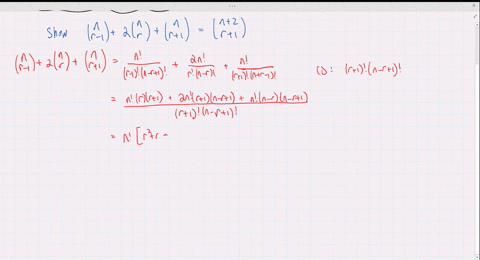 Show (n r-1) + 2(n r) + (n r+1) = (n+2 r+1)
(n r-1) + 2(n r) + (n r+1) = n!/((r-1)!(n-r+1)!) + 2n!/(r!(n-r)!) + n!/((r+1)!(n-r-1)!) CD: (r+1)!(n-r+1)!
= (n!(r)(r+1) + 2n!(r+1)(n-r+1) + n!(n-r)(n-r+1))/((r+1)!(n-r+1)!)
= n! [r²+r -